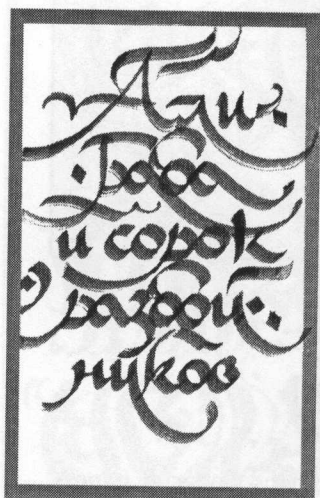 Али-
Баба
и сорок
разбой-
ников